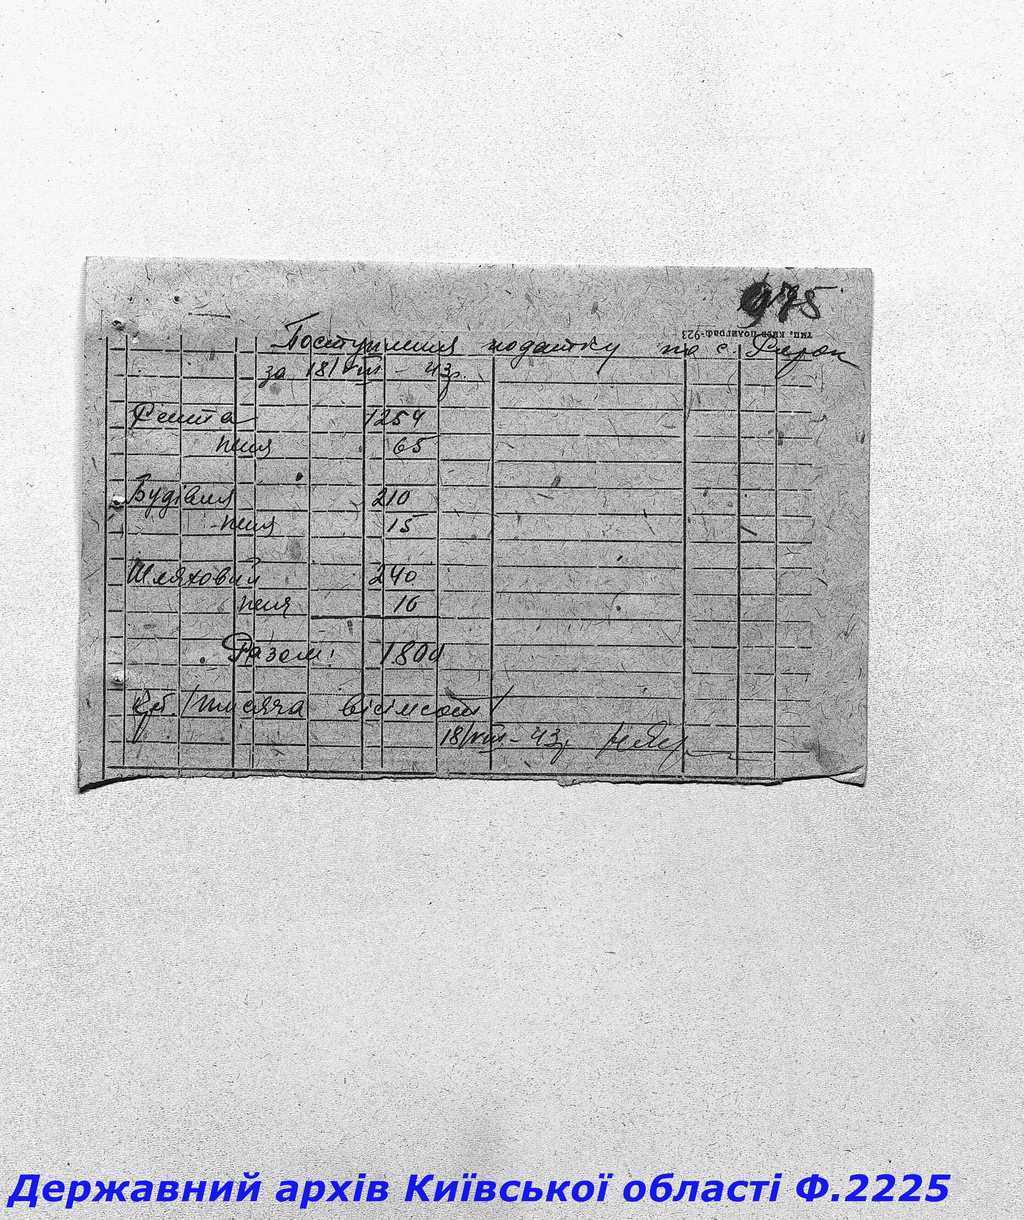 975
тип. Київ-полиграф-923
Поступлення податку по с.
за 18/VIII – 43р.
Рента 1254
пеня 65
Будівля 210
- пеня 15
Шляховий 240
пеня 16
Разом: 1800
Крб. /тисяча вісімсот/
18/VIII – 43р
Державний архів Київської області Ф.2225